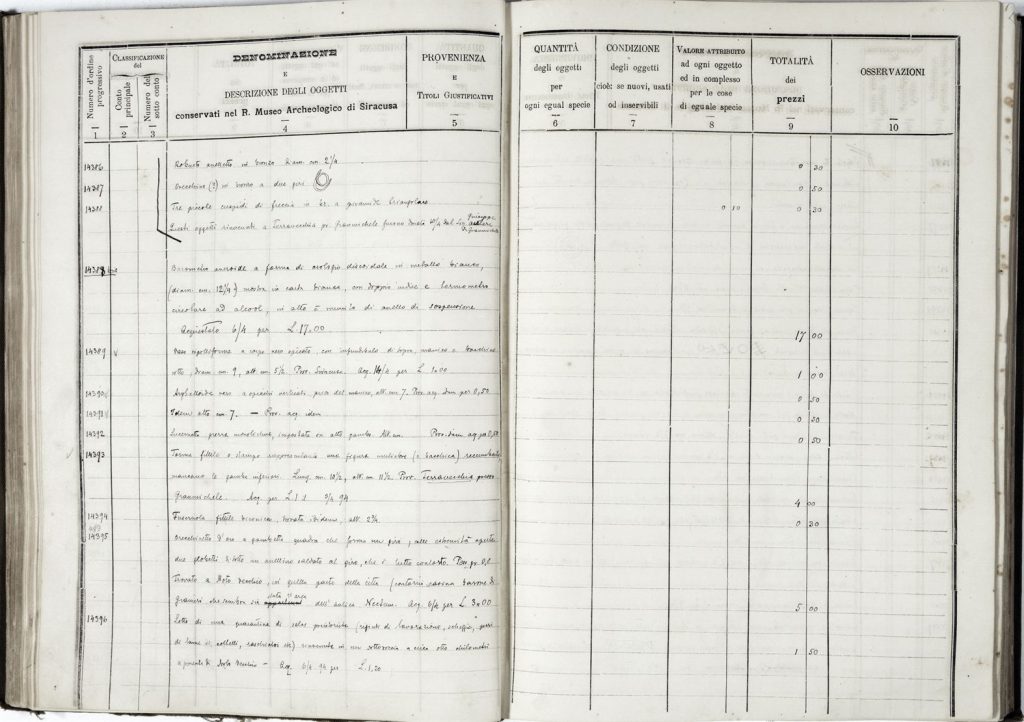 Numero d'ordine progressivo
1
CLASSIFICAZIONE
del
Conto principale
2
Numero del sotto conto
3
DENOMINAZIONE
E
DESCRIZIONE DEGLI OGGETTI
conservati nel R. Museo Archeologico di Siracusa
4
PROVENIENZA
E
TITOLI GIUSTIFICATIVI
5
QUANTITÀ
degli oggetti
per
ogni egual specie
6
CONDIZIONE
degli oggetti
cioè: se nuovi, usati
od inservibili
7
VALORE ATTRIBUITO
ad ogni oggetto
ed in complesso
per le cose
di eguale specie
8
TOTALITÀ
dei
prezzi
9
OSSERVAZIONI
10
14386 Robusto anelletto in bronzo diam. cm. 2 1/4 0 30
14387 Orecchino (?) in bronzo a due giri 0 50
14388 Tre piccole cuspidi di freccia in br. a piramide triangolare 0 10 0 30
Questi oggetti rinvenuti a Terravecchia pr. Grammichele furono donati dal Sig. Giuseppe
di Grammichele
14388 bis Barometro aneroide a forma di orologio discoidale in metallo bianco,
(diam. cm. 12 1/4) mostra in carta bianca, con doppio indice e termometro
circolare ad alcool, in alto è munito di anello di sospensione.
Acquistato 6/4 per L 17.00 17 00
14389 Vaso a corpo nero, con di sopra, manico e
sotto, diam. cm. 9, alt. cm. 5 1/2. Prov. Siracusa. Acq. per L 1.00 1 00
14390 verticali, privo del manico, alt. cm 7. Prov. acq. idem per 0,50 0 50
14391 Idem alto cm 7. — Prov. acq. idem 0 50
14392 Lucernetta su alto gambo. Prov. idem acq. per 0,50 0 50
14393 Forma fittile a stampo rappresentante una figura recumbente
mancano le gambe inferiori. Lung. cm. 10 1/2, alt. cm 11 1/2. Prov. Terravecchia presso
Grammichele. Acq. per L. 94 4 00
14394 Fuseruola fittile biconica, trovata ibidem, alt. 2 3/4. 0 30
14395 Orecchinetto d'oro a gambetto quadra che forma un giro, alle estremità
due globetti sotto un anellino saldato al giro, che è tutto contorto.
trovato a Noto Vecchio, in quella parte della città (contorno barone di
che sembra sia stata l'area dell'antica Neetum. Acq. 6/4 per L. 5.00 5 00
14396 Lotto di una quarantina di selci preistoriche (rifiuti di lavorazione, scheggie, pezzi
di lame, coltelli, raschiatoi etc) rinvenute in una a circa otto chilometri
a ponente di Noto Vecchio — Acq. 6/4 94 per L 1,50 1 50